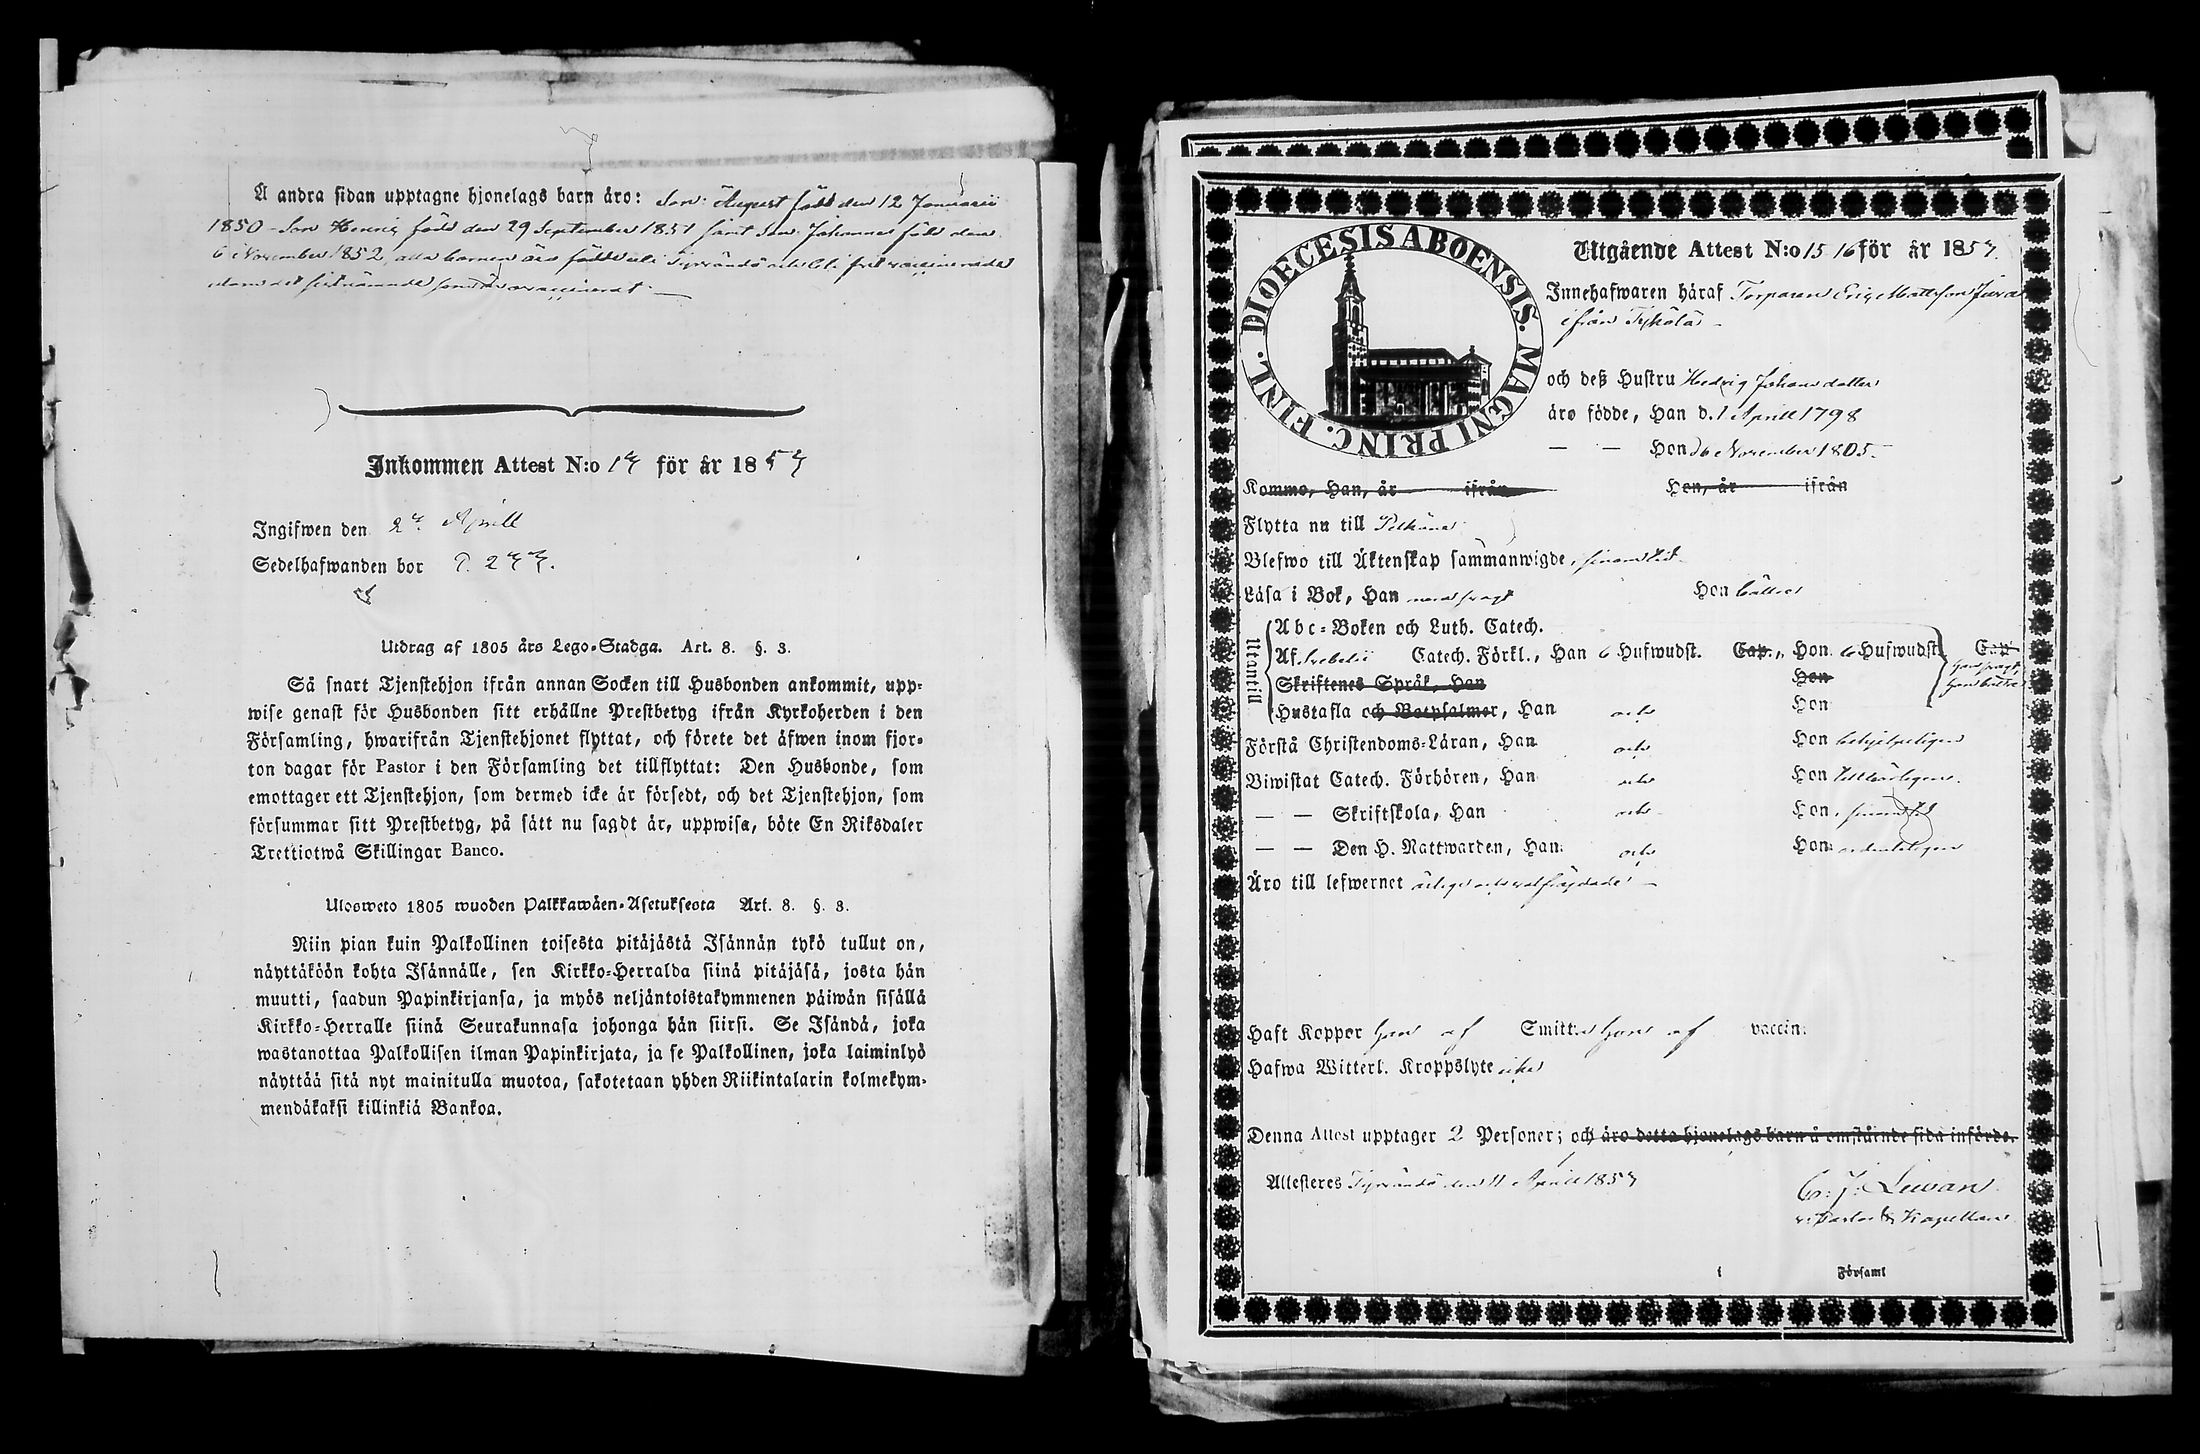 A andra sidan upptagne hjonelags barn äro: Son: August född den 12 Januarii
1850 - Son Henrik född den 29 September 1851 samt Son Johannes född den
6 November 1852, alla barnen äro födde uti Tyrvändö och bli
Inkommen Attest N:o 17 för år 1857
Ingifwen den 27 Aprill
Sedelhafwanden bor P. 277.
Utdrag af 1805 års Lego-Stadga. Art. 8. §. 3.
Så snart Tjenstehjon ifrån annan Socken till Husbonden ankommit, upp-
wise genast för Husbonden sitt erhållne Prestbetyg ifrån Kyrkoherden i den
Församling, hwarifrån Tjenstehjonet flyttat, och förete det äfwen inom fjor-
ton dagar för Pastor i den Församling det tillflyttat: Den Husbonde, som
emottager ett Tjenstehjon, som dermed icke är försedt, och det Tjenstehjon, som
försummar sitt Prestbetyg, på sätt nu sagdt är, uppwisa, böte En Riksdaler
Trettiotwå Skillingar Banco.
Ulosweto 1805 wuoden Palkkawäen-Asetuksesta Art. 8. §. 3.
Niin pian kuin Palkollinen toisesta pitäjästä Isännän tykö tullut on,
näyttäköön kohta Isännälle, sen Kirkko-Herralda siinä pitäjäsä, josta hän
muutti, saadun Papinkirjansa, ja myös neljäntoistakymmenen päiwän sisällä
Kirkko-Herralle siinä Seurakunnasa johonga hän siirsi. Se Isändä, joka
wastanottaa Palkollisen ilman Papinkirjata, ja se Palkollinen, joka laiminlyö
näyttää sitä nyt mainitulla muotoa, sakotetaan yhden Riikintalarin kolmekym-
mendäkaksi killinkiä Bankoa.
DIOECESIS ABOENSIS. MAGNI PRINC. FINL.
Utgående Attest N:o 15 16 för år 1857.
Innehafwaren häraf Torparen Eric Mattsson
ifrån Tykölä
och deß Hustru Hedvig Johansdotter
äro födde, Han d. 1 Aprill 1798
— — Hon d 6 November 1805.
Kommo, Han, år ifrån Hon, år ifrån
Flytta nu till Pelkäne
Blefwo till Äktenskap sammanwigde,
Läsa i Bok, Han Hon bättre
Utantill
Abc-Boken och Luth. Catech.
Af Svebelii Catech. Förkl., Han 6 Hufwudst. Cap., Hon 6 Hufwudst. Cap
Skriftenes Språk, Han Hon
Han svagt
Hon bättre
Hustafla och Botpsalmer, Han och Hon
Förstå Christendoms-Läran, Han och Hon behjelpeligen
Biwistat Catech. Förhören, Han och Hon tillbörligen.
— — Skriftskola, Han och Hon,
— — Den H. Nattwarden, Han och Hon ordenteligen
Äro till lefwernet ärlige och wälfrägdade
Haft Koppor Han af Smitt. Hon af vaccin.
Hafwa Witterl. Kroppslyte icke
Denna Attest upptager 2 Personer; och äro detta hjonelags barn å omstående sida införde.
Attesteras Tyrvändö den 11 Aprill 1857
v: Pastor & Kapellan
i Församl